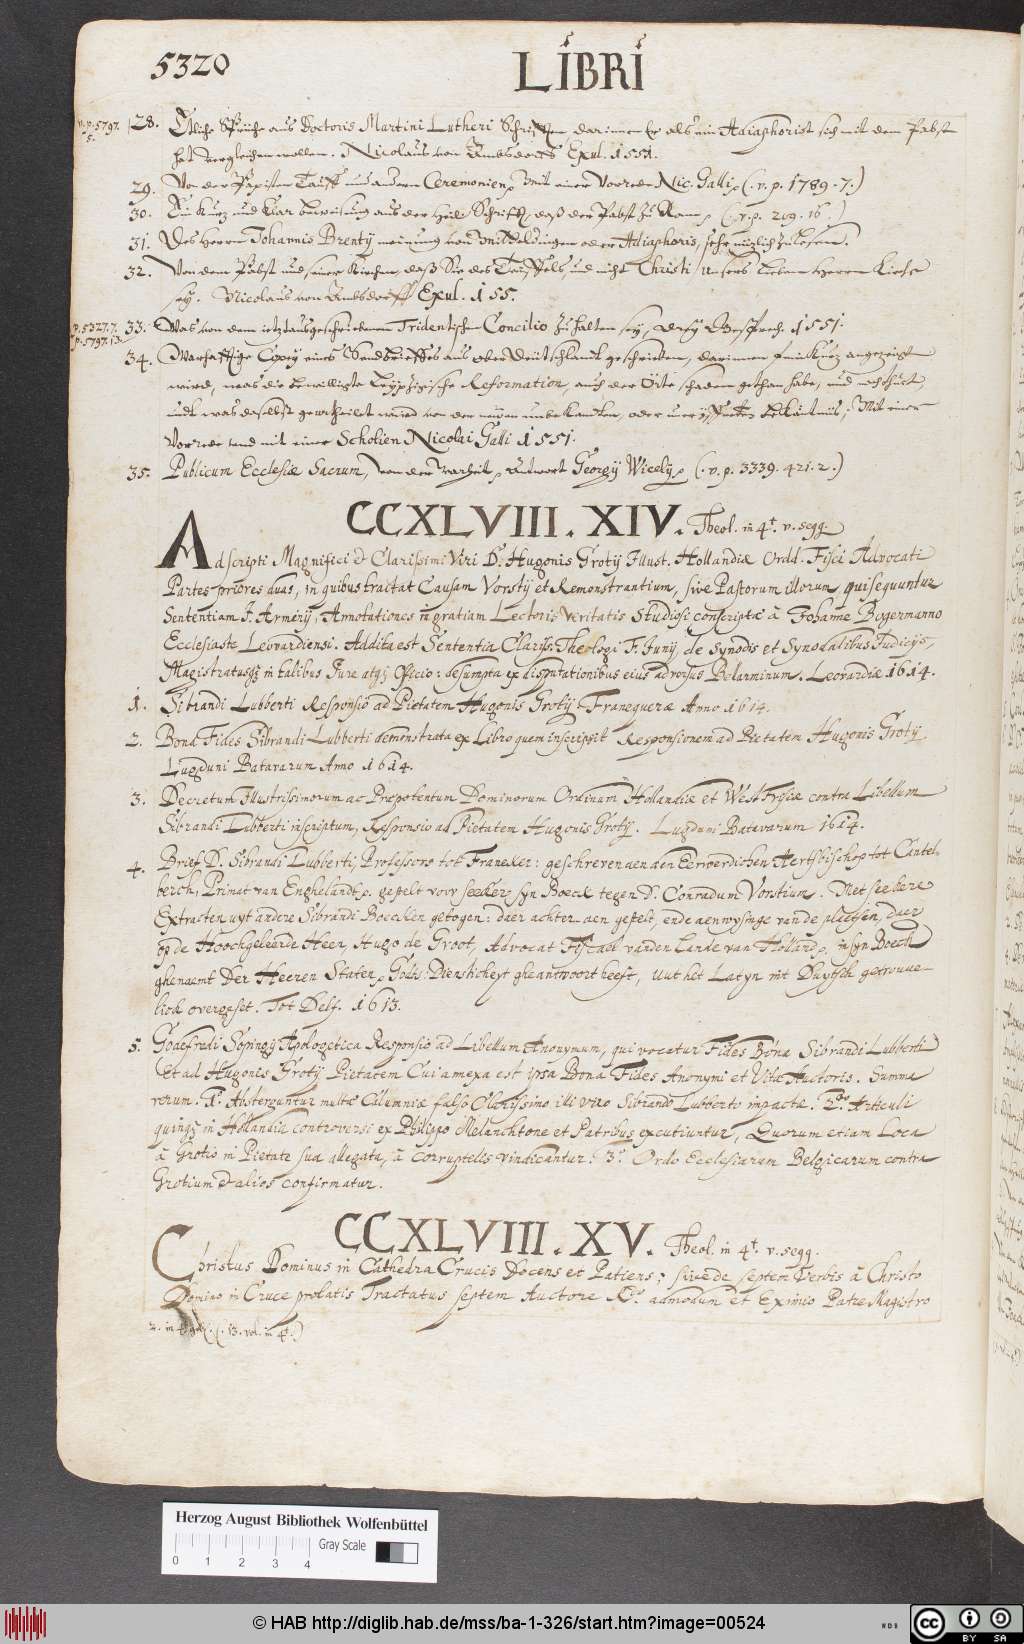 5320
LIBRI
v. p. 5797.
5.
128. Etliche Sprüche aus Doctoris Martini Lutheri Schrifften, darinnen Er als ein Adiaphorist sich mit dem Pabst
hat vergleichen wollen. Nicolaus von Ambsdorff Exul. 1551.
29. Von der Papisten Tauff und andern Ceremonien, Mit einer Vorreden Nic. Galli, (. v. p. 1789. 7.)
30. Ein kurz und klar beweisung aus der Heil. Schrifft, daß der Pabst zu Rom, (. v. p. 219. 16.)
31. Des Herrn Johannis Brentij meinung von Mitteldingen oder Adiaphoris, sehr nüzlich zu lesen.
32. Von dem Pabst und seiner Kirchen, daß Sie des Teuffels, und nicht Christi Unsers lieben Herrn Kirche
sey. Nicolaus von Ambsdorff Exul. 155.
p. 5327. 7.
p. 5797. 13.
33. Was von dem iezt ausgeschriebenen Tridentischen Concilio zu halten sey, Gespräch. 1551.
34. Warhafftige Copey eines Sendbrieffes aus ober Deutschland geschrieben, darinnen kurz angezeigt
wird, was die bewilligte Leypzigische Reformation, auch der Örte schaden gethan habe, und noch thut,
und was daselbst geurtheilet wird von der neuen unbekandten, oder Bekäntnüs, Mit einer
Vorrede und mit einer Scholien Nicolai Galli 1551.
35. Publicum Ecclesiæ Sacrum, von der warheit, Antwort Georgij Wicelij, (. v. p. 3339. 421. 2.)
CCXLVIII. XIV. Theol. in 4t. v. segg.
Adscripti Magnifici & Clarissimi Viri D. Hugonis Grotij Illust. Hollandiæ Ordd. Fisci Advocati
Partes priores duas, in quibus tractat Causam Vorstij et Remonstrantium, sive Pastorum illorum, qui sequuntur
Sententiam J. Arminij, Annotationes in gratiam Lectoris Veritatis Studiosi conscriptæ à Johanne Bogermanno
Ecclesiaste Leovardiensi. Addita est Sententia Clariss. Theologi F. Junij, de Synodis et Synodalibus Judicijs,
Magistratusq; in talibus Jure atq; Officio: desumpta ex disputationibus eius adversus Belarminum. Leovardiæ 1614.
1. Sibrandi Lubberti Responsio ad Pietatem Hugonis Grotij. Franequeræ Anno 1614.
2. Bona Fides Sibrandi Lubberti demonstrata ex Libro quem inscripsit Responsionem ad Pietatem Hugonis Grotij
Lugduni Batavarum Anno 1614.
3. Decretum Illustrissimorum ac Præpotentum Dominorum Ordinum Hollandiæ et West Frisiæ contra Libellum
Sibrandi Lubberti inscriptum, Responsio ad Pietatem Hugonis Grotij. Lugduni Batavarum 1614.
4. Brief D. Sibrandi Lubberti, Professoro tot Franeker: geschreven aen den Eerwerdichen Aertsbischop tot Cantel-
berch, Primat van Enghelandt, gestelt voor seecker syn Boeck tegen D. Conradum Vorstium. Met seekere
Extracten uyt andere Sibrandi Boecken getogen: daer achter aen gestelt, ende aenwysinge van de plaetsen, daer
op de Hoochgeleerde Heer, Hugo de Groot, Advocat Fiscael vanden Lande van Holland, in syn Boeck
ghenaemt Der Heeren Staten, Godts-Diensticheyt gheantwoort heeft, Uut het Latyn int Duytsch getrouwe-
lick overgeset. Tot Delf. 1613.
5. Godefredi Sopingij Apologetica Responsio ad Libellum Anonymum, qui vocatur Fides Bona Sibrandi Lubberti
Et ad Hugonis Grotij Pietatem Cui annexa est ipsa Bona Fides Anonymi et Vitæ Auctoris. Summa
rerum. 1. Absterguntur multæ Calumniæ falso Clarissimo illi viro Sibrando Lubberto impactæ. 2do Articuli
quinq; in Hollandia controversi ex Philippo Melanchtone et Patribus excutiuntur, Quorum etiam Loca
à Grotio in Pietate sua allegata, à Corruptelis vindicantur. 3. Ordo Ecclesiarum Belgicarum contra
Grotium & alios confirmatur.
CCXLVIII. XV. Theol. in 4t. v. segg.
Christus Dominus in Cathedra Crucis Docens et Patiens; sive de septem Verbis à Christo
Domino in Cruce prolatis Tractatus septem Auctore R. admodum et Eximio Patre Magistro
(. 13. vol. in 4t.)
Herzog August Bibliothek Wolfenbüttel
0 1 2 3 4
Gray Scale
© HAB http://diglib.hab.de/mss/ba-1-326/start.htm?image=00524
WDB
cc BY SA